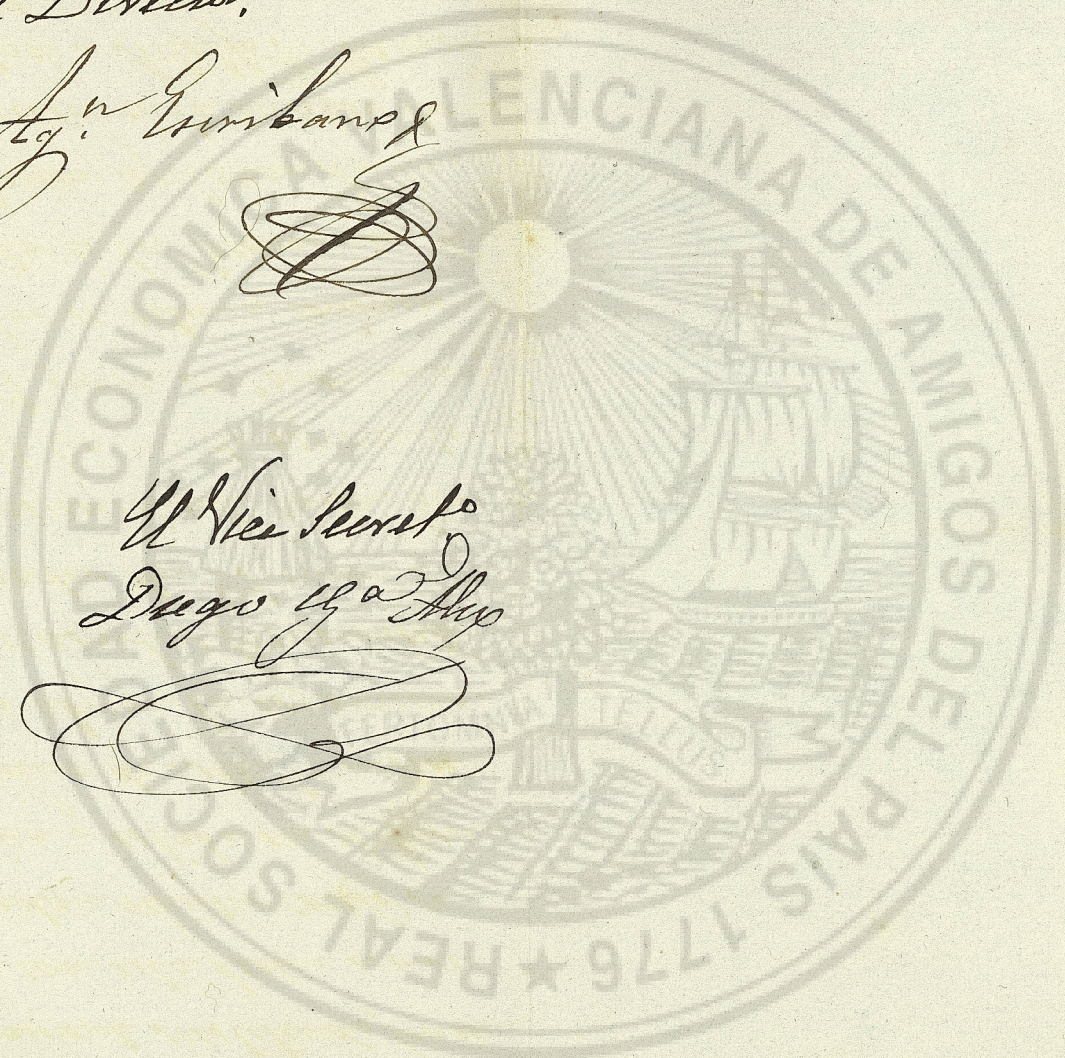 Director.
Ag.n Escribano
El Vice Secret.o
Diego G.a Alix
REAL SOCIEDAD ECONOMICA VALENCIANA DE AMIGOS DEL PAIS 1776 ★
FERT OMNIA TELLUS